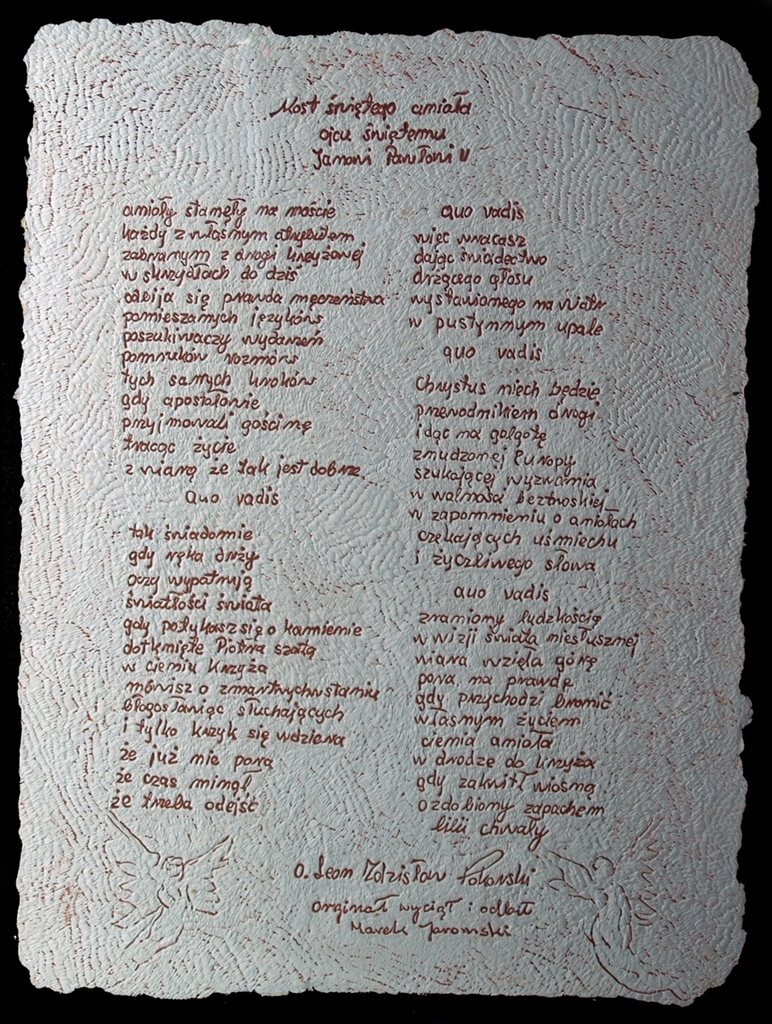 Most świętego anioła
ojcu świętemu
Janowi Pawłowi II
anioły stanęły na moście
każdy z własnym atrybutem
zabranym z drogi krzyżowej
w skrzydłach do dziś
odbija się prawda męczeństwa
pomieszanych języków
poszukiwaczy wydarzeń
pomruków rozmów
tych samych kroków
gdy apostołowie
przyjmowali gościnę
tracąc życie
z wiarą że tak jest dobrze
quo vadis
tak świadomie
gdy ręka drży
oczy wypatrują
światłości świata
gdy potykasz się o kamienie
dotknięte Piotra szatą
w cieniu krzyża
mówisz o zmartwychwstaniu
błogosławiąc słuchających
i tylko krzyk się wdziera
że już nie pora
że czas minął
że trzeba odejść
quo vadis
więc wracasz
dając świadectwo
drżącego głosu
wystawionego na wiatr
w pustynnym upale
quo vadis
Chrystus niech będzie
przewodnikiem drogi
idąc na golgotę
znudzonej Europy
szukającej wyzwania
w wolności beztroskiej
w zapomnieniu o aniołach
czekających uśmiechu
i życzliwego słowa
quo vadis
zraniony ludzkością
w wizji świata niesłusznej
wiara wzięła górę
pora na prawdę
gdy przychodzi bronić
własnym życiem
cienia anioła
w drodze do krzyża
gdy zakwitł wiosną
ozdobiony zapachem
lilii chwały
O. Leon Zdzisław
orginał wyciął i odbił
Marek Jaromski